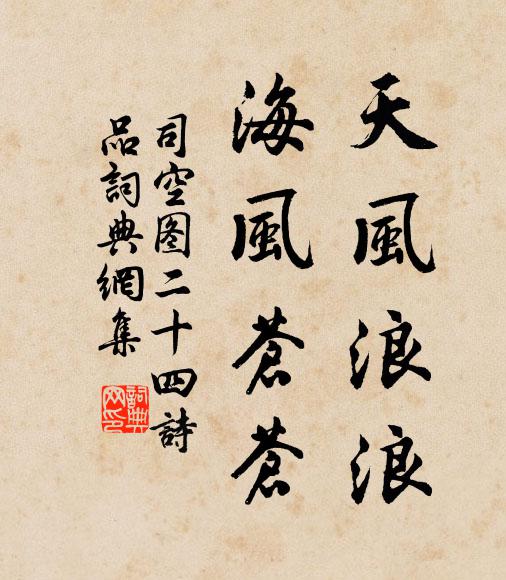 天風浪浪
海風蒼蒼
司空图二十四詩
品詞典網集
詞典
网印